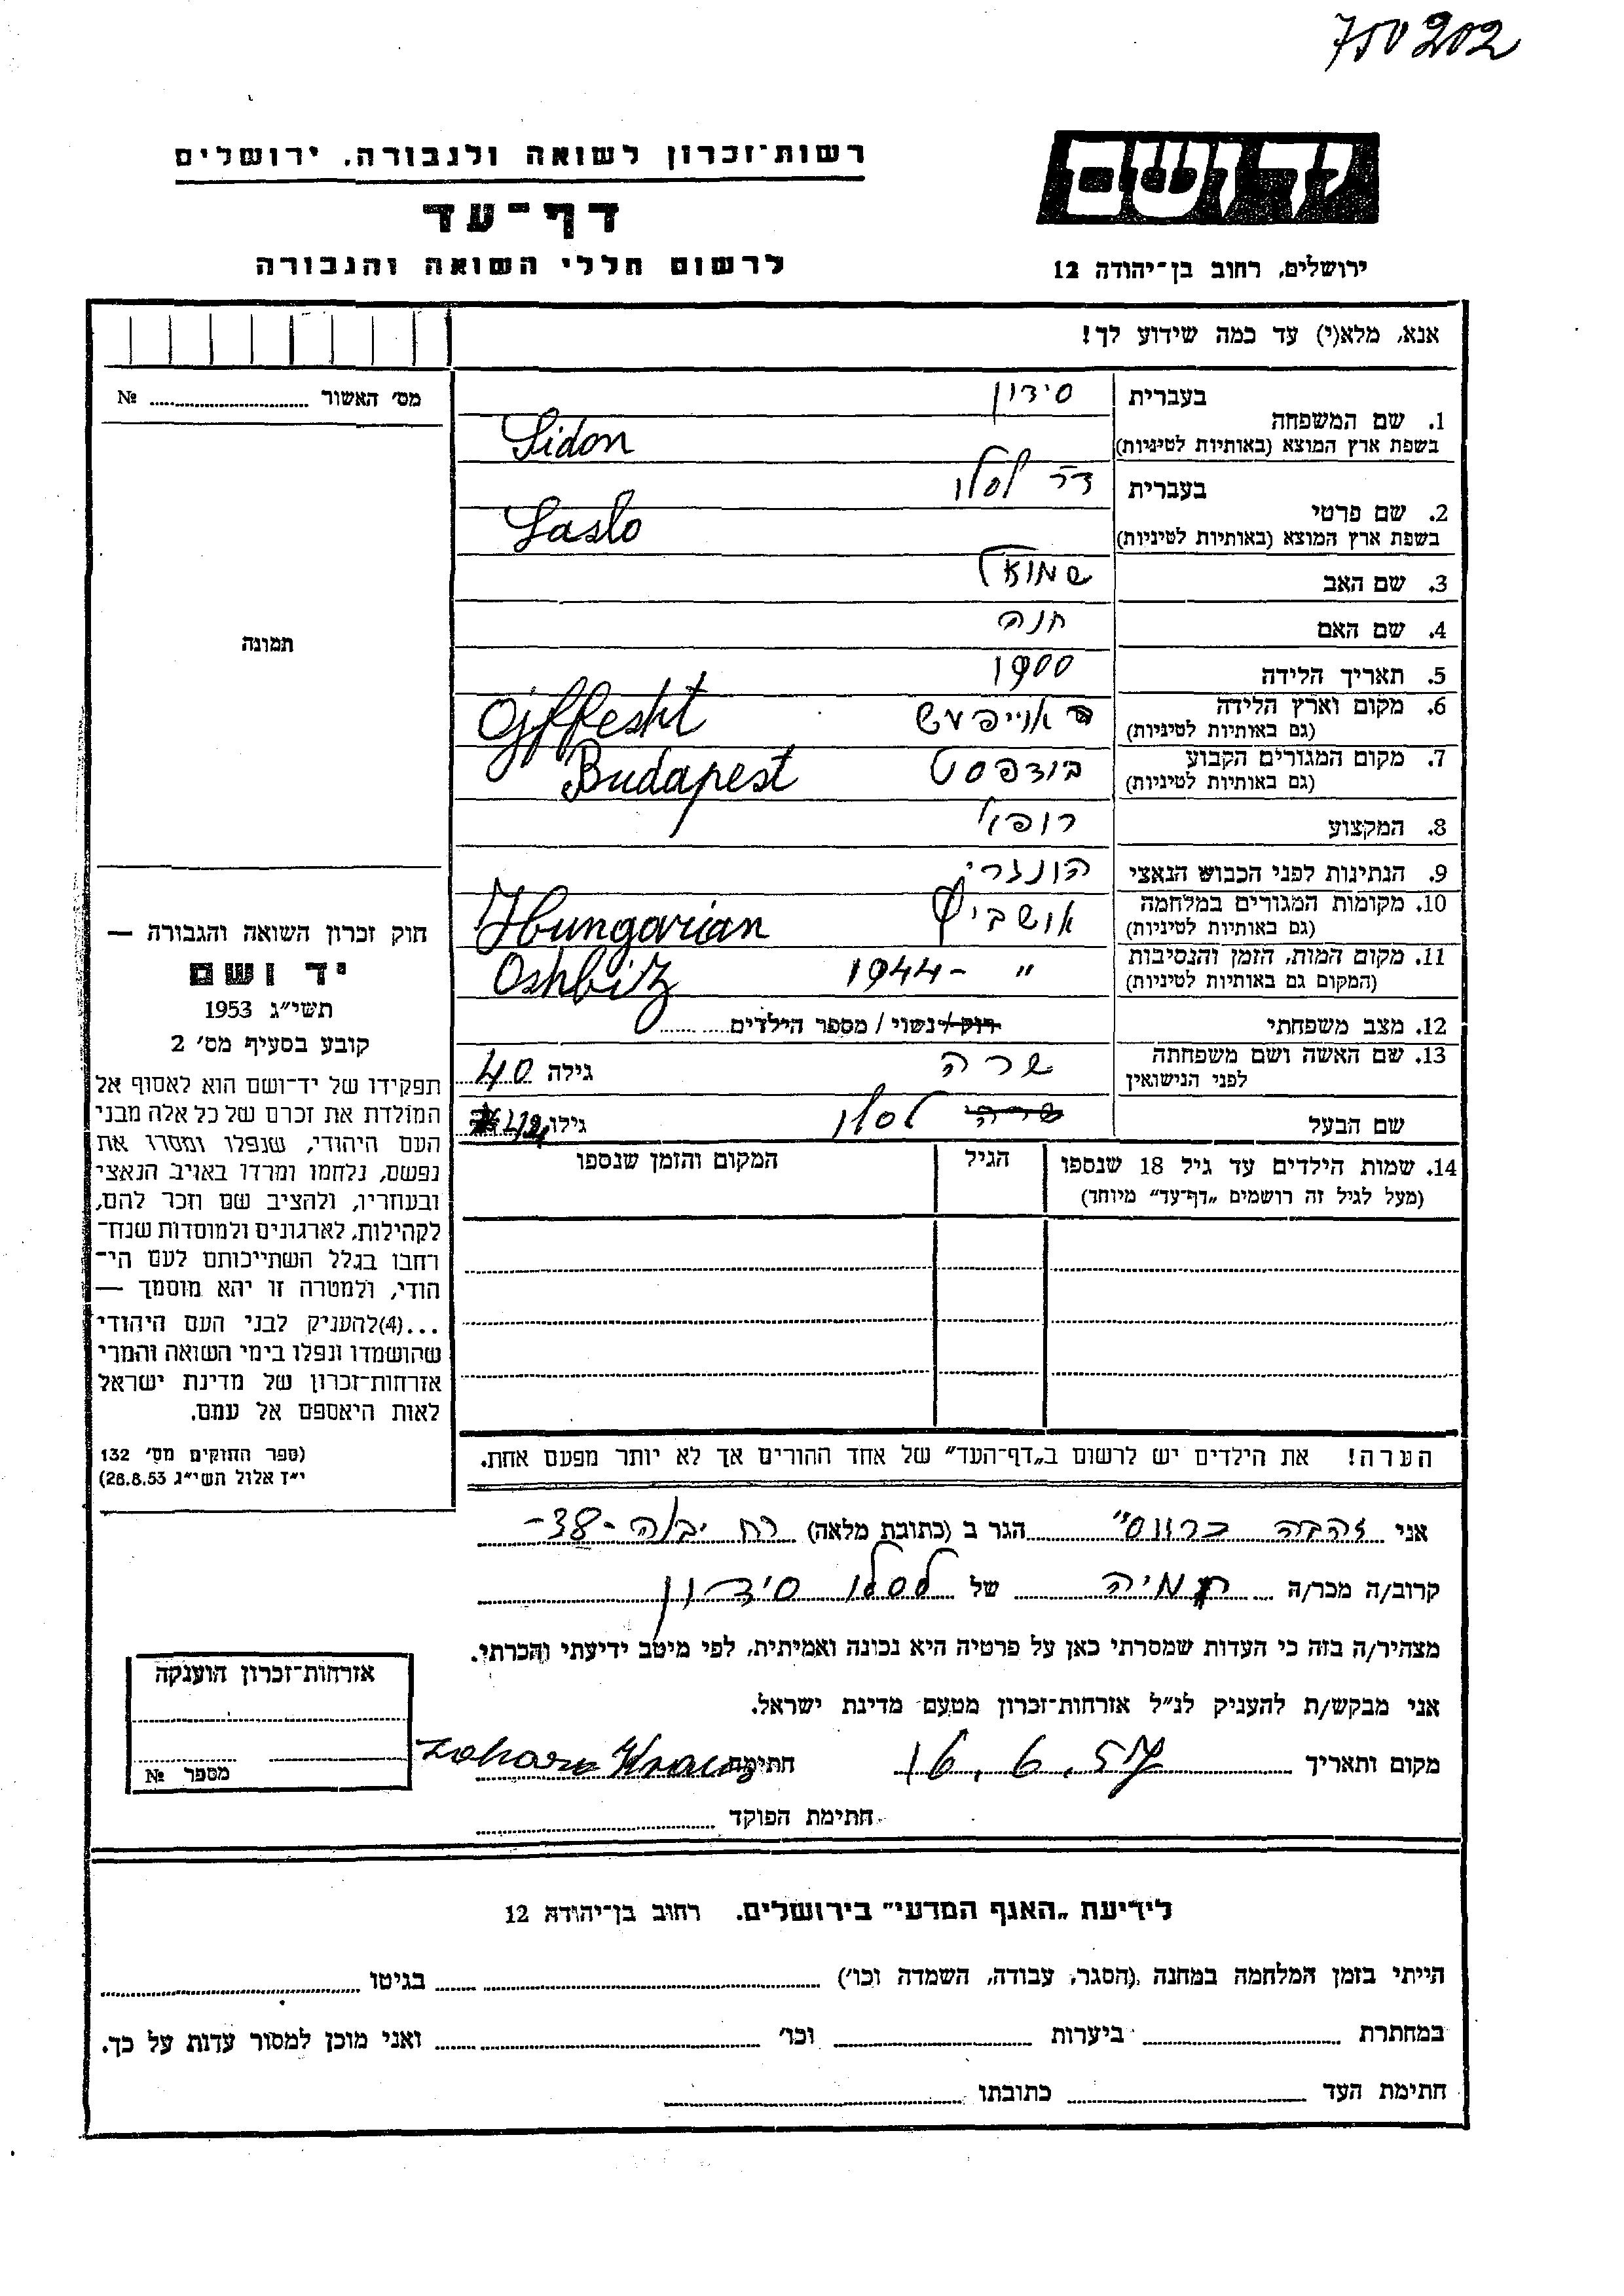 750202
רשות־זכרון לשואה ולגבורה, ירושלים
ידושם
דף־עד
לרשום חללי השואה והגבורה
ירושלים, רחוב בן־יהודה 12
אנא, מלא(י) עד כמה שידוע לך!
מס׳ האשור № 
1. שם המשפחה
בעברית סידון
בשפת ארץ המוצא (באותיות לטיניות) Sidon
2. שם פרטי
בעברית דר לסלו
בשפת ארץ המוצא (באותיות לטיניות) Laslo
3. שם האב שמואל
4. שם האם חנה
5. תאריך הלידה 1900
6. מקום וארץ הלידה אוייפשט
(גם באותיות לטיניות) Ojffesht
7. מקום המגורים הקבוע בודפסט
(גם באותיות לטיניות) Budapest
8. המקצוע רופא
9. הנתינות לפני הכבוש הנאצי הונגרי
10. מקומות המגורים במלחמה אושביץ
(גם באותיות לטיניות) Hungarian
11. מקום המות, הזמן והנסיבות ״ 1944-
(המקום גם באותיות לטיניות) Oshbitz
12. מצב משפחתי רוק / נשוי / מספר הילדים
13. שם האשה ושם משפחתה שרה גילה 40
לפני הנישואין
שם הבעל שרה לסלו גילו
14. שמות הילדים עד גיל 18 שנספו הגיל המקום והזמן שנספו
(מעל לגיל זה רושמים „דף־עד״ מיוחד)
תמונה
חוק זכרון השואה והגבורה —
יד ושם
תשי״ג 1953
קובע בסעיף מס׳ 2
תפקידו של יד־ושם הוא לאסוף אל
המולדת את זכרם של כל אלה מבני
העם היהודי, שנפלו ומסרו את
נפשם, נלחמו ומרדו באויב הנאצי
ובעוזריו, ולהציב שם וזכר להם,
לקהילות, לארגונים ולמוסדות שנח־
רחבו בגלל השתייכותם לעם הי־
הודי, ולמטרה זו יהא מוסמך —
...(4)להעניק לבני העם היהודי
שהושמדו ונפלו בימי השואה והמרי
אזרחות־זכרון של מדינת ישראל
לאות היאספם אל עמם.
(ספר החוקים מס׳ 132
י״ז אלול תשי״ג 28.8.53)
הערה! את הילדים יש לרשום ב„דף־העד״ של אחד ההורים אך לא יותר מפעם אחת.
אני זהבה הגר ב (כתובת מלאה) רח יבנה -38-
קרוב/ה מכר/ה של לסלו סידון
מצהיר/ה בזה כי העדות שמסרתי כאן על פרטיה היא נכונה ואמיתית, לפי מיטב ידיעתי והכרתי.
אני מבקש/ת להעניק לנ״ל אזרחות־זכרון מטעם מדינת ישראל.
מקום ותאריך 16.6.57 חתימת
חתימת הפוקד
אזרחות־זכרון הוענקה
מספר №
לידיעת „האגף המדעי״ בירושלים. רחוב בן־יהודה 12
הייתי בזמן המלחמה במחנה (הסגר, עבודה, השמדה וכו׳) בגיטו
במחתרת ביערות וכו׳ ואני מוכן למסור עדות על כך.
חתימת העד כתובתו